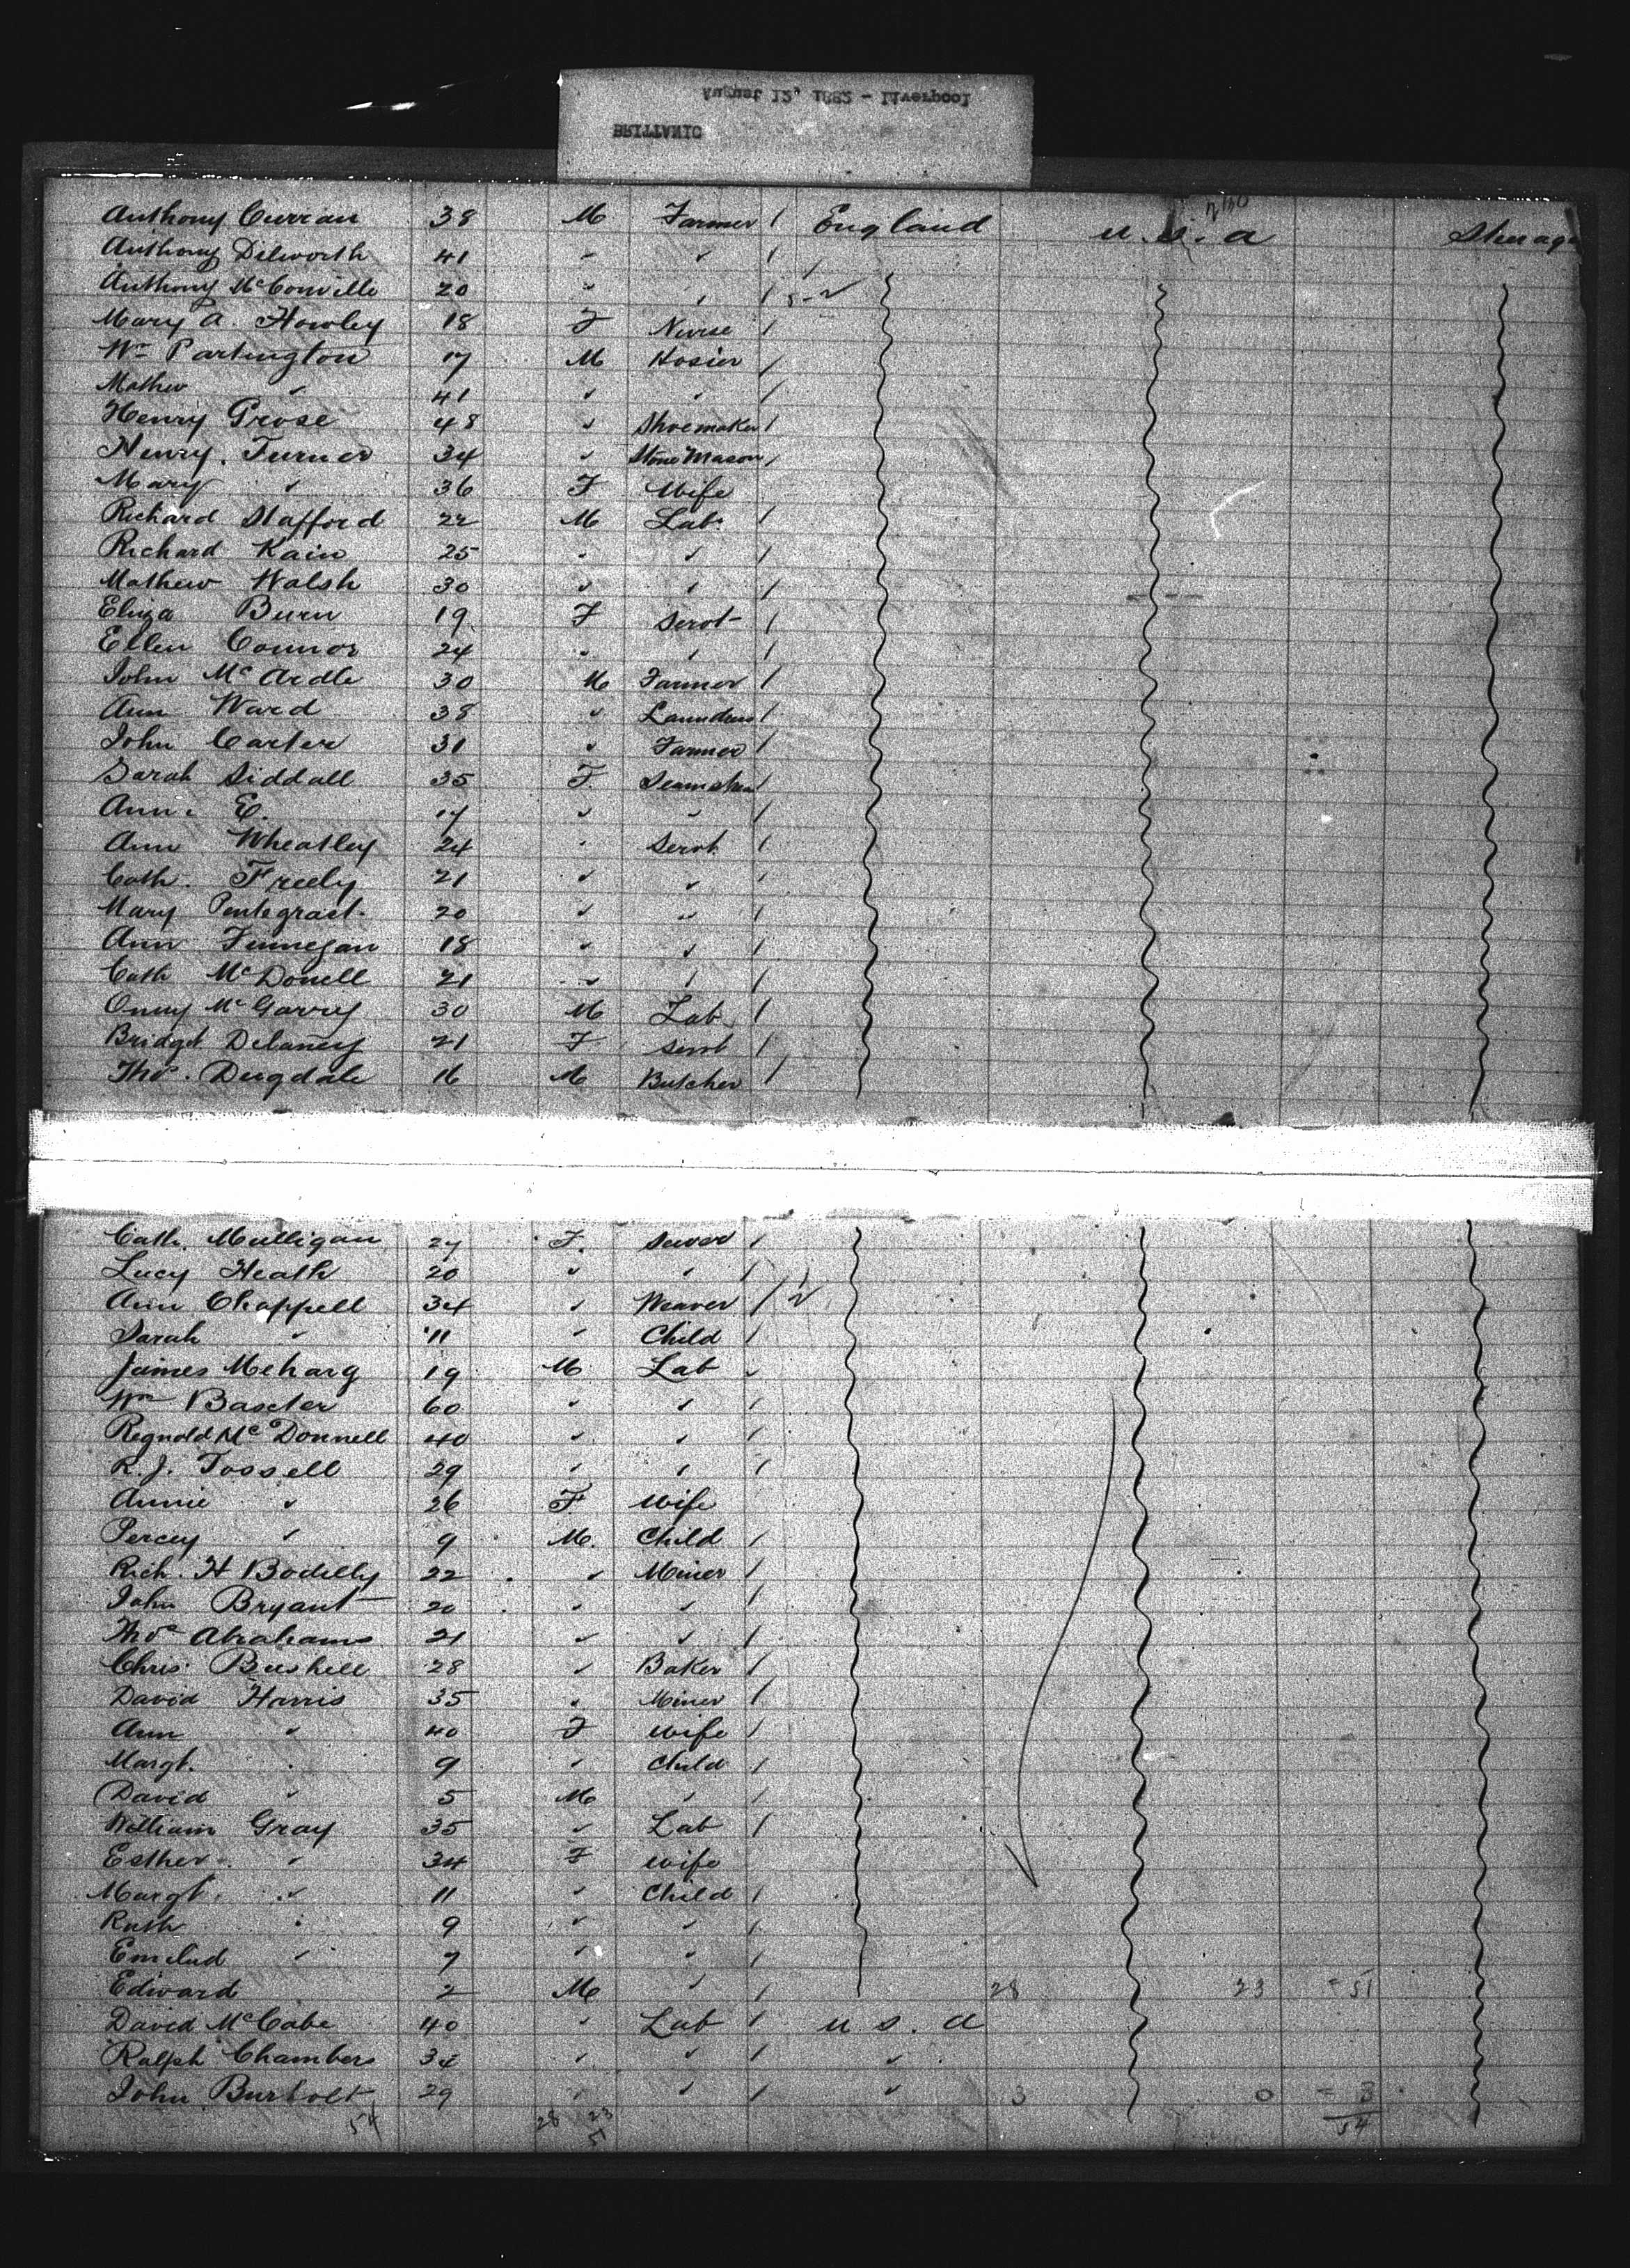 August 12, 1882 - Liverpool
BRITTANIC
Anthony Curran 38 M Farmer / England U.S.A Steerage
Anthony Dilworth 41 " " /
Anthony McConville 20 " " /
Mary A. Howley 18 F Nurse /
Wm Partington 17 M Hosier /
Mathew " 41 " " /
Henry Grose 48 " Shoemaker /
Henry Turner 34 " Stone Mason /
Mary " 36 F Wife
Richard Stafford 22 M Lab. /
Richard Kain 25 " " /
Mathew Walsh 30 " " /
Eliza Burn 19 F Servt /
Ellen Connor 24 " " /
John McArdle 30 M Farmer /
Ann Ward 38 " Laundress /
John Carter 31 " Farmer /
Sarah Siddall 35 F. Seamstress /
Ann. E. 17 " " /
Ann Wheatley 24 " Servt. /
Cath. Freely 21 " " /
Mary Pentegrast. 20 " " /
Ann Finnegan 18 " " /
Cath McDonell 21 " " /
Onny McGarry 30 M Lab /
Bridget Delaney 21 F Servt /
Thos. Dugdale 16 M Butcher /
Cath. Mulligan 27 F. Sewer /
Lucy Heath 20 " " /
Ann Chappell 34 " Weaver /
Sarah " 11 " Child /
James Meharg 19 M Lab
Wm Baxter 60 " " /
Regnold McDonnell 40 " " /
R. J. Tossell 29 " " /
Annie " 26 F Wife
Percey " 9 M. Child /
Rich. H Bodelly 22 " Miner /
John Bryant 20 " " /
Thos Abrahams 21 " " /
Chris. Bushell 28 " Baker /
David Harris 35 " Miner /
Ann " 40 F Wife /
Margt. " 9 " Child /
David " 5 M " /
William Gray 35 " Lab /
Esther " 34 F Wife
Margt. " 11 " Child /
Ruth " 9 " " /
" 7 " " /
Edward 2 M " / 28 23 = 51
David McCabe 40 " Lab / U.S.A
Ralph Chambers 34 " " / "
John Burbolt 29 " " / " 3 0 = 3
54 28 23 54
5